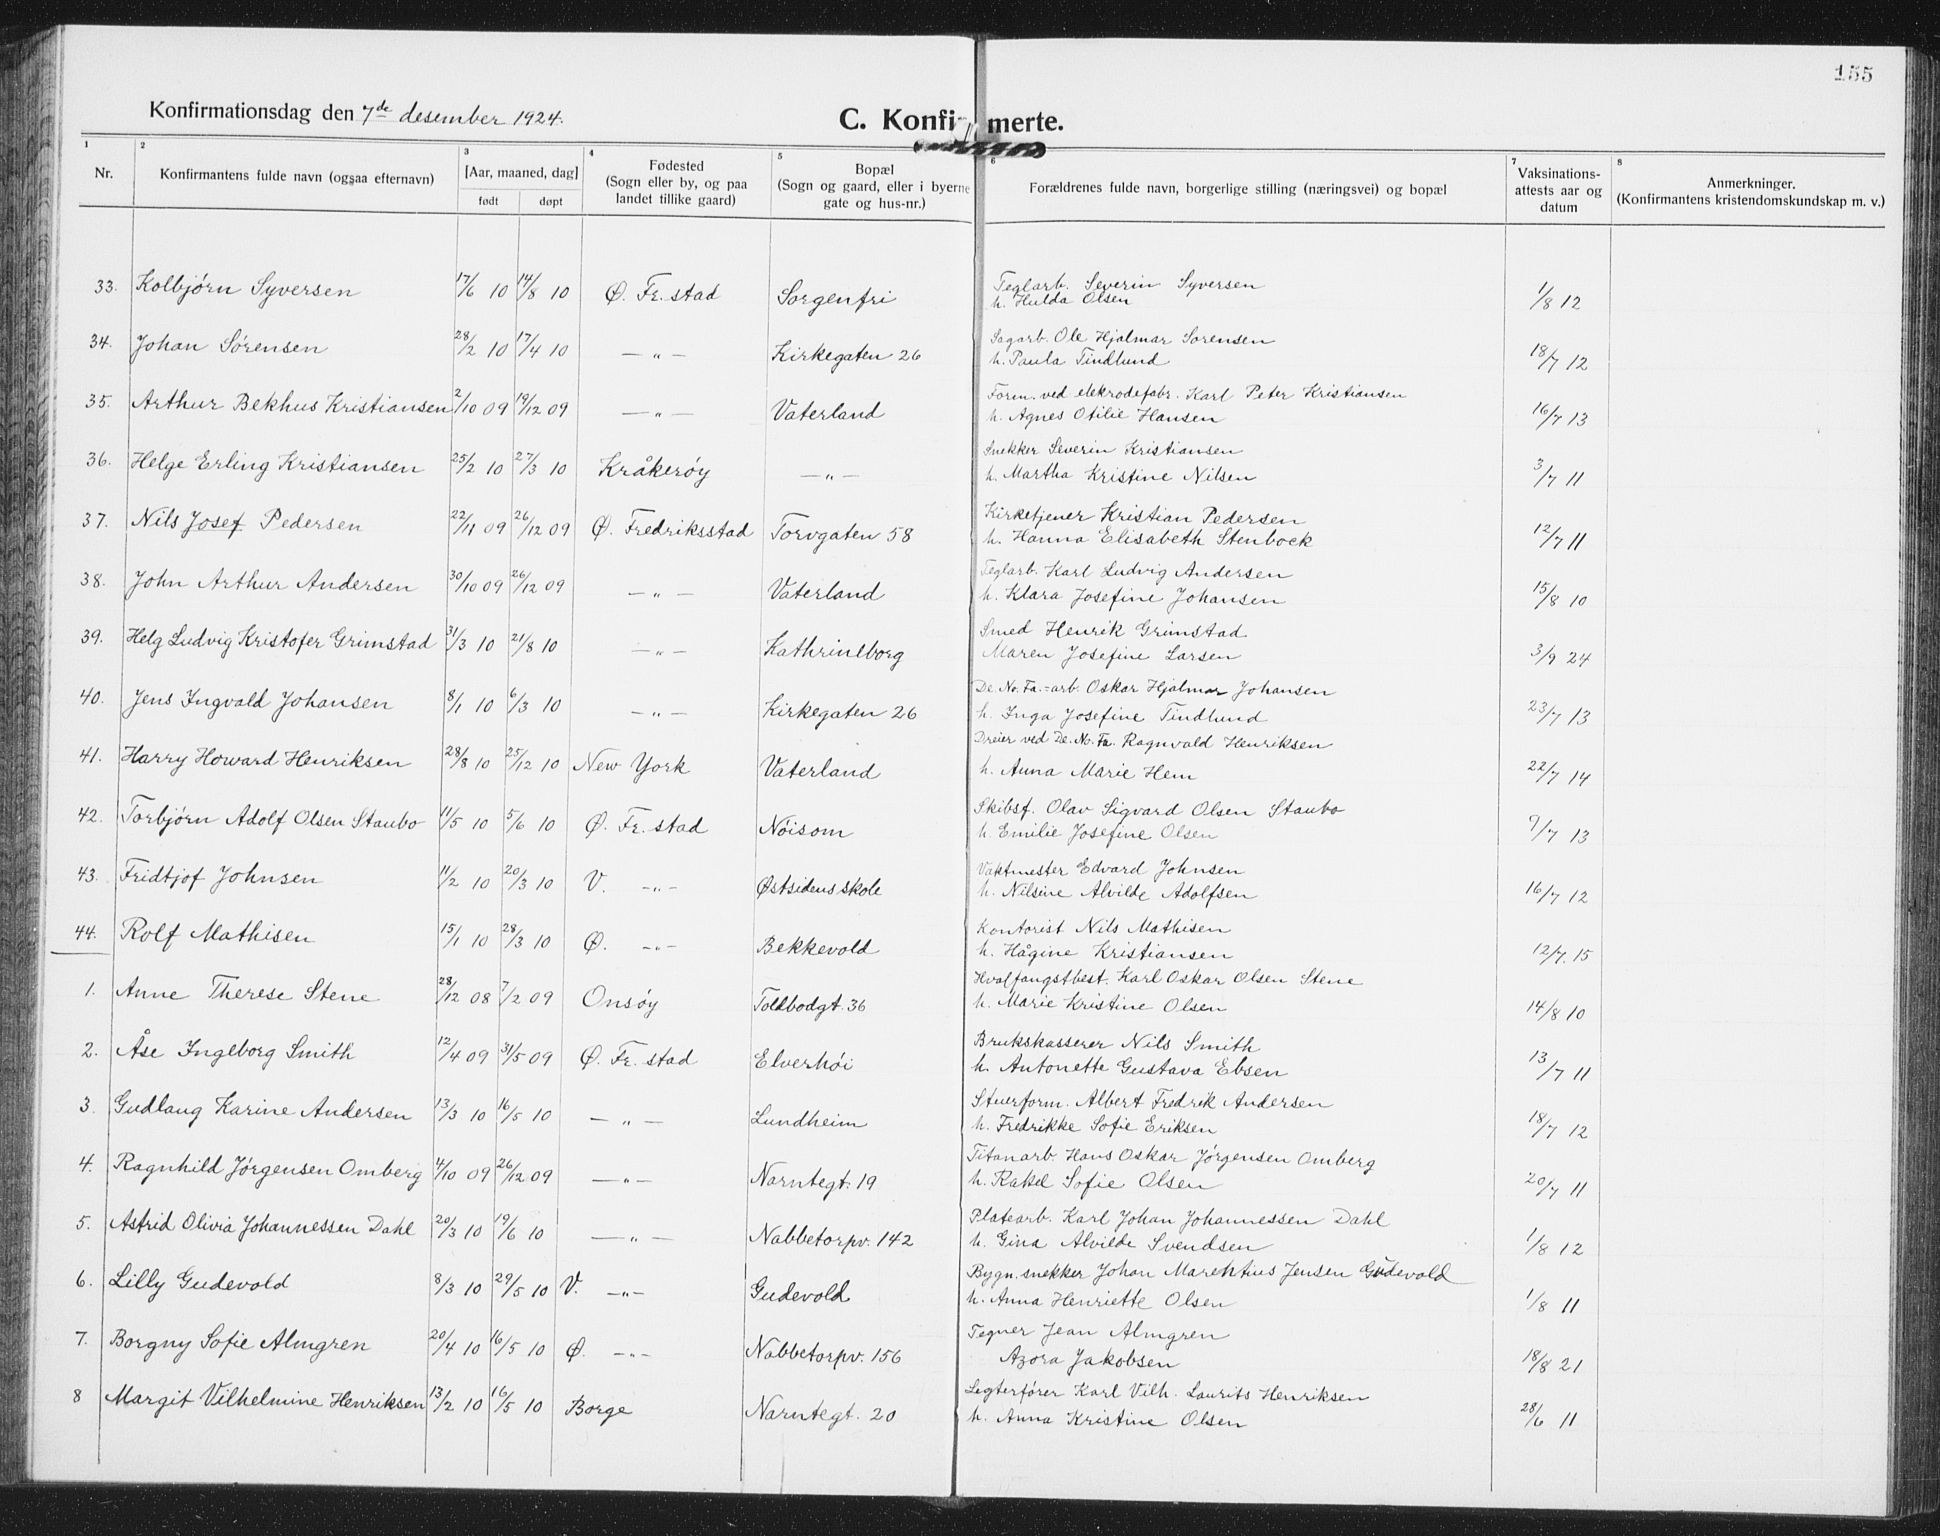 155
Konfirmationsdag den 7de desember 1924.
C. Konfirmerte.
1 2 3 4 5 6 7 8
Nr. Konfirmantens fulde navn (ogsaa efternavn) [Aar, maaned, dag] født døpt Fødested (Sogn eller by, og paa landet tillike gaard) Bopæl (Sogn og gaard, eller i byerne gate og hus-nr.) Forældrenes fulde navn, borgerlige stilling (næringsvei) og bopæl Vaksinations-attests aar og datum Anmerkninger. (Konfirmantens kristendomskundskap m. v.)
33. Kolbjørn Syversen 17/6 10 14/8 10 Ø. Fr.stad Sorgenfri Teglarb. Severin Syversen 1/8 12
h. Hulda Olsen
34. Johan Sørensen 28/2 10 17/4 10 — „ — Kirkegaten 26 Sagarb. Ole Hjalmar Sørensen 18/7 12
h. Paula Tindlund
35. Arthur Bekhus Kristiansen 2/10 09 19/12 09 — „ — Vaterland Form. ved elekrodefabr. Karl Peter Kristiansen 16/7 13
h. Agnes Otilie Hansen
36. Helge Erling Kristiansen 25/2 10 27/3 10 Kråkerøy — „ — Snekker Severin Kristiansen 3/7 11
h. Martha Kristine Nilsen
37. Nils Josef Pedersen 22/11 09 26/12 09 Ø. Fredriksstad Torvgaten 58 Kirketjener Kristian Pedersen 12/7 11
h. Hanna Elisabeth Stenbock
38. John Arthur Andersen 30/10 09 26/12 09 — „ — Vaterland Teglarb. Karl Ludvig Andersen 15/8 10
h. Klara Josefine Johansen
39. Helg Ludvig Kristofer Grimstad 31/3 10 21/8 10 — „ — Kathrineborg Smed Henrik Grimstad 3/9 24
Maren Josefine Larsen
40. Jens Ingvald Johansen 8/1 10 6/3 10 — „ — Kirkegaten 26 De. No. Fa.=arb. Oskar Hjalmar Johansen 23/7 13
h. Inga Josefine Tindlund
41. Harry Howard Henriksen 28/8 10 25/12 10 New York Vaterland Dreier ved De. No. Fa. Ragnvald Henriksen 22/7 14
h. Anna Marie Hem
42. Torbjørn Adolf Olsen Staubo 11/5 10 5/6 10 Ø. Fr. stad Nöisom Skibsf. Olav Sigvard Olsen Staubo 9/7 13
h. Emilie Josefine Olsen
43. Fridtjof Johnsen 11/2 10 20/3 10 V. — „ — Østsidens skole Vaktmester Edvard Johnsen 16/7 12
h. Nilsine Alvilde Adolfsen
44. Rolf Mathisen 15/1 10 28/3 10 Ø. — „ — Bekkevold Kontorist Nils Mathisen 12/7. 15
h. Hågine Kristiansen
1. Anne Therese Stene 28/12 08 7/2 09 Onsøy Toldbodgt. 36 Hvalfangstbest. Karl Oskar Olsen Stene 14/8 10
h. Marie Kristine Olsen
2. Åse Ingeborg Smith 12/4 09 31/5 09 Ø. Fr. stad Elverhöi Brukskasserer Nils Smith 13/7 11
h. Antonette Gustava Ebsen
3. Gudlaug Karine Andersen 13/3 10 16/5 10 — „ — Lundheim Stuerform. Albert Fredrik Andersen 18/7 12
h. Fredrikke Sofie Eriksen
4. Ragnhild Jørgensen Omberg 4/10 09 26/12 09 — „ — Narntegt. 19 Titanarb. Hans Oskar Jørgensen Omberg 20/7 11
h. Rakel Sofie Olsen
5. Astrid Olivia Johannessen Dahl 20/3 10 19/6 10 — „ — Nabbetorpv. 142 Platearb. Karl Johan Johannessen Dahl 1/8 12
h. Gina Alvilde Svendsen
6. Lilly Gudevold 8/3 10 29/5 10 V. — „ — Gudevold Bygn. snekker Johan Marentius Jensen Gudevold 1/8 11
h. Anna Henriette Olsen
7. Borgny Sofie Almgren 20/4 10 16/5 10 Ø. — „ — Nabbetorpv. 156 Tegner Jean Almgren 18/8 21
Azora Jakobsen
8 Margit Vilhelmine Henriksen 13/2 10 16/5 10 Borge Narntegt. 20 Legterfører Karl Vilh. Laurits Henriksen 28/6 11
h. Anna Kristine Olsen